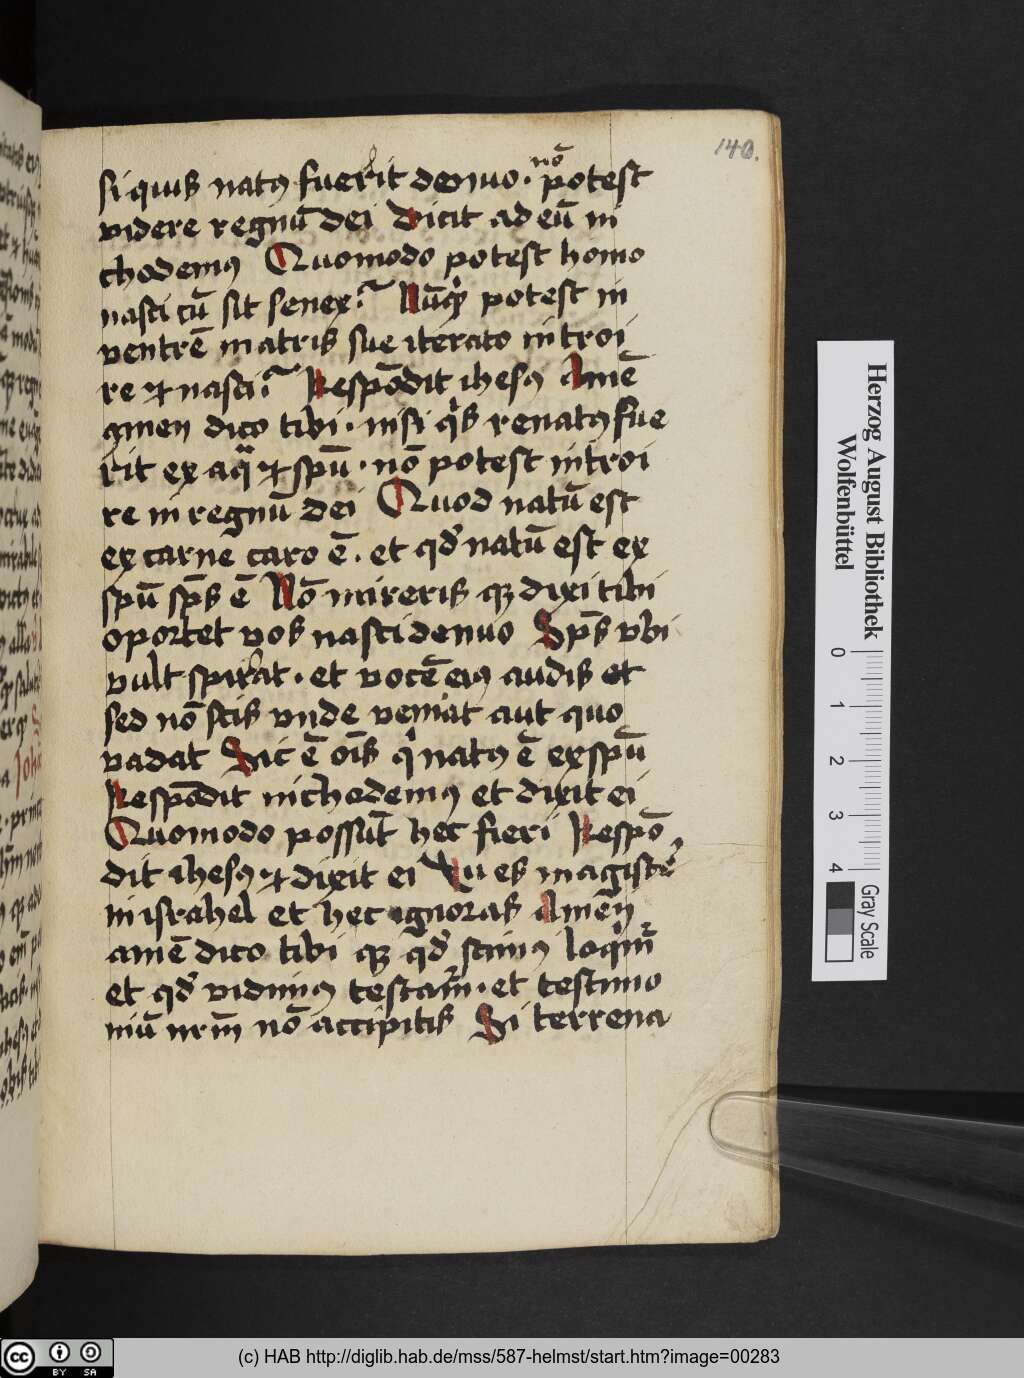 140.
si quis natꝰ fuerit denuo · nō potest
videre regnū dei dicit ad eū ni
chodemꝰ Quomodo potest homo
nasci cū sit senex? Nūqͥd potest in
ventrē matris sue iterato introi
re et nasci? Respōdit ihesꝰ Amē
amen dico tibi · nisi qͥs renatꝰ fue
rit ex aqᵃ et spū · nō potest introi
re in regnū dei Quod natū est
ex carne caro ē · et qd̛ natū est ex
spū spūs ē Nō mireris qꝫ dixi tibi
oportet vos nasci denuo Spūs vbi
vult spirat · et vocē eiꝰ audis et
sed nō scis vnde veniat aut quo
vadat Sic ē oīs qͥ natꝰ ē ex spū
Respōdit nichodemꝰ et dixit ei
Quomodo possūt hec fieri Respō
dit ihesꝰ et dixit ei Tu es magister
in israhel et hec ignoras Amēn
amē dico tibi qꝫ qd̛ scimꝰ loqͥmͬ
et qd̛ vidimꝰ testamͬ · et testimo
niū nrm̄ nō accipitis Si terrena
Herzog August Bibliothek
Wolfenbüttel
0 1 2 3 4
Gray Scale
cc BY SA
(c) HAB http://diglib.hab.de/mss/587-helmst/start.htm?image=00283